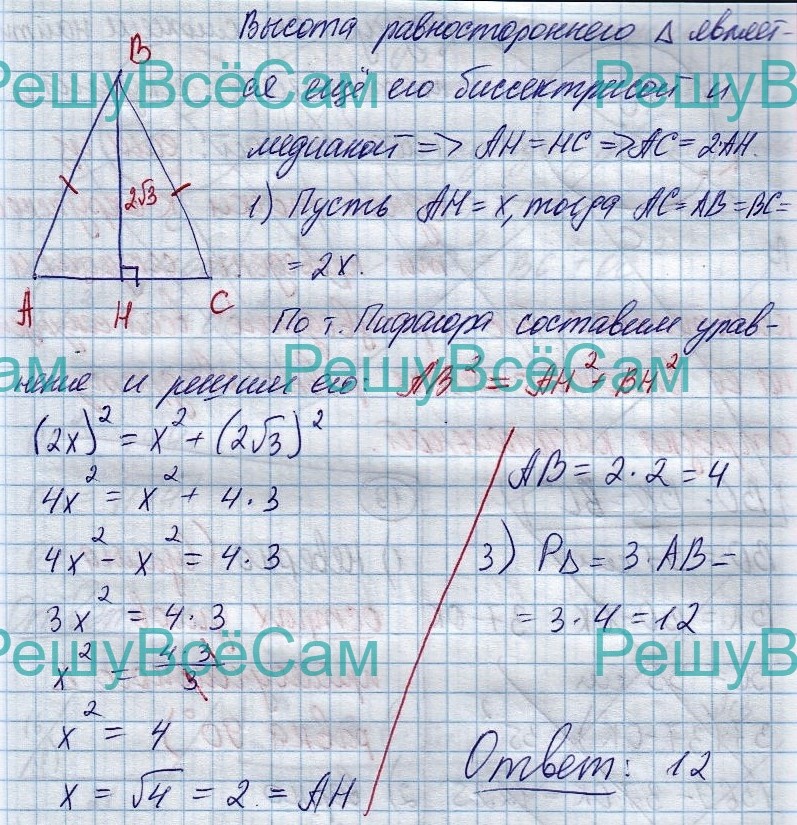 Высота равностороннего Δ являет-
ся ещё его биссектрисой и
медианой => AH = HC => AC = 2·AH.
1) Пусть AH = x, тогда AC = AB = BC =
= 2x.
B
2√3
A H C
По т. Пифагора составим урав-
нение и решим его: AB² = AH² + BH²
(2x)² = x² + (2√3)²
4x² = x² + 4·3
4x² - x² = 4·3
3x² = 4·3
x² = 4·3/3
x² = 4
x = √4 = 2 = AH
AB = 2·2 = 4
3) PΔ = 3·AB =
= 3·4 = 12
Ответ: 12
РешуВсёСам
РешуВ
РешуВсёСам
РешуВсёСам
РешуВ
ам